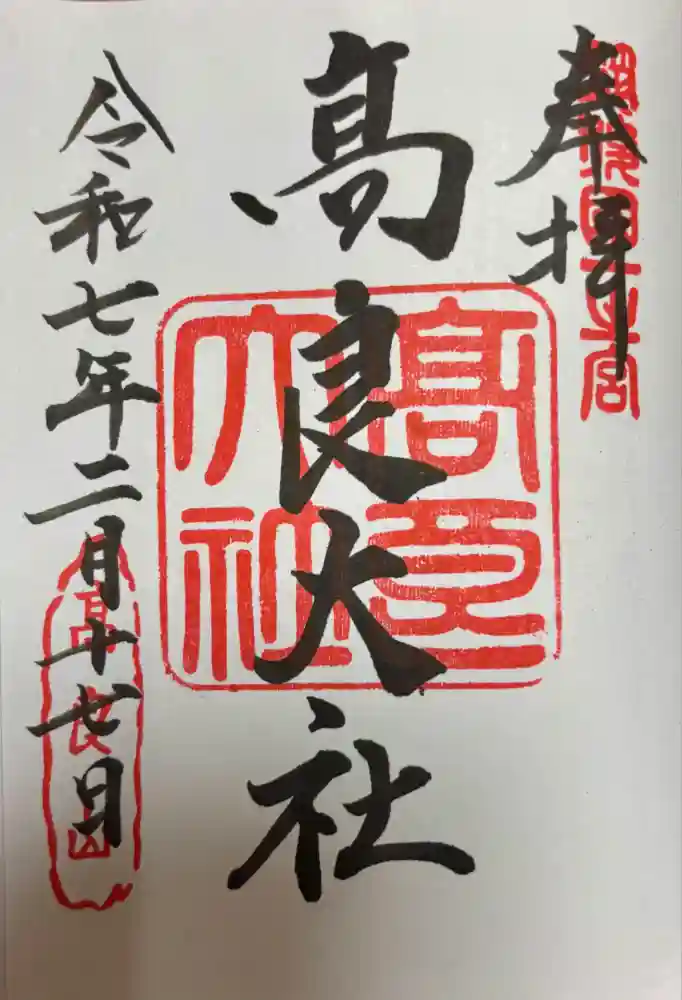 奉拝
筑後国一之宮
高良大社
高良大社
令和七年二月十七日
高良山